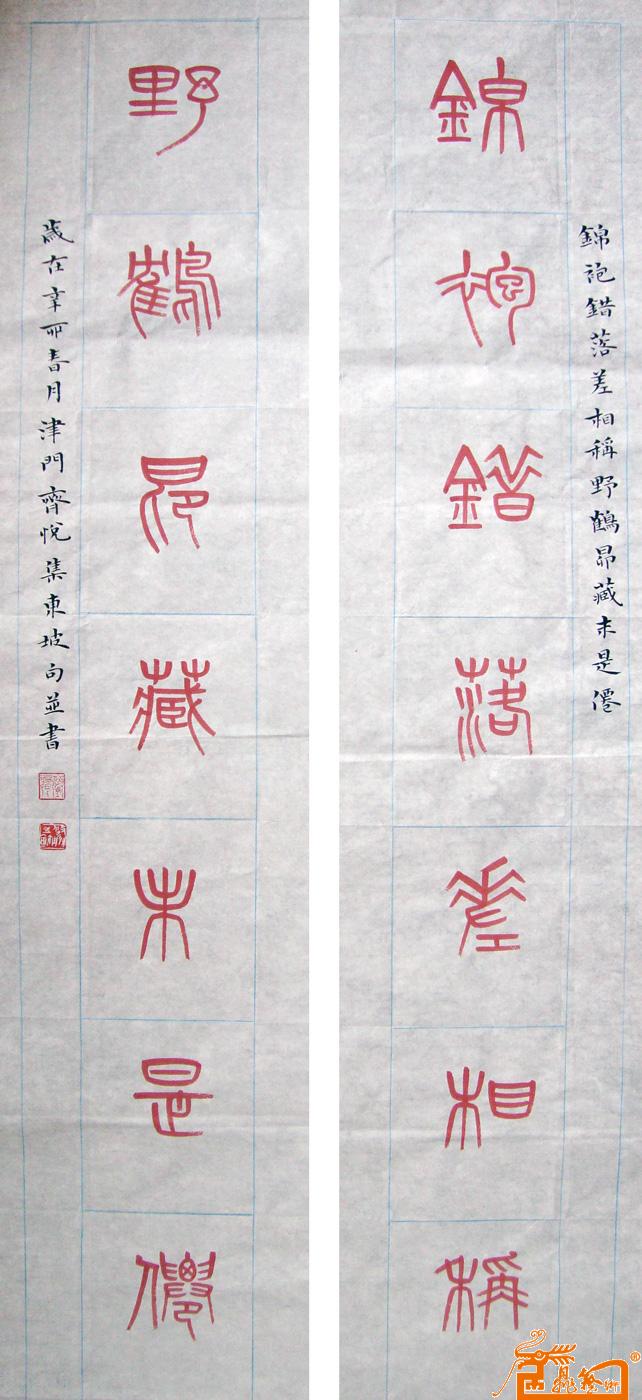 錦袍錯落差相稱野鶴昂藏未是僊
錦袍錯落差相稱
野鶴昂藏未是僊
歲在辛卯春月津門齊悅集東坡句並書